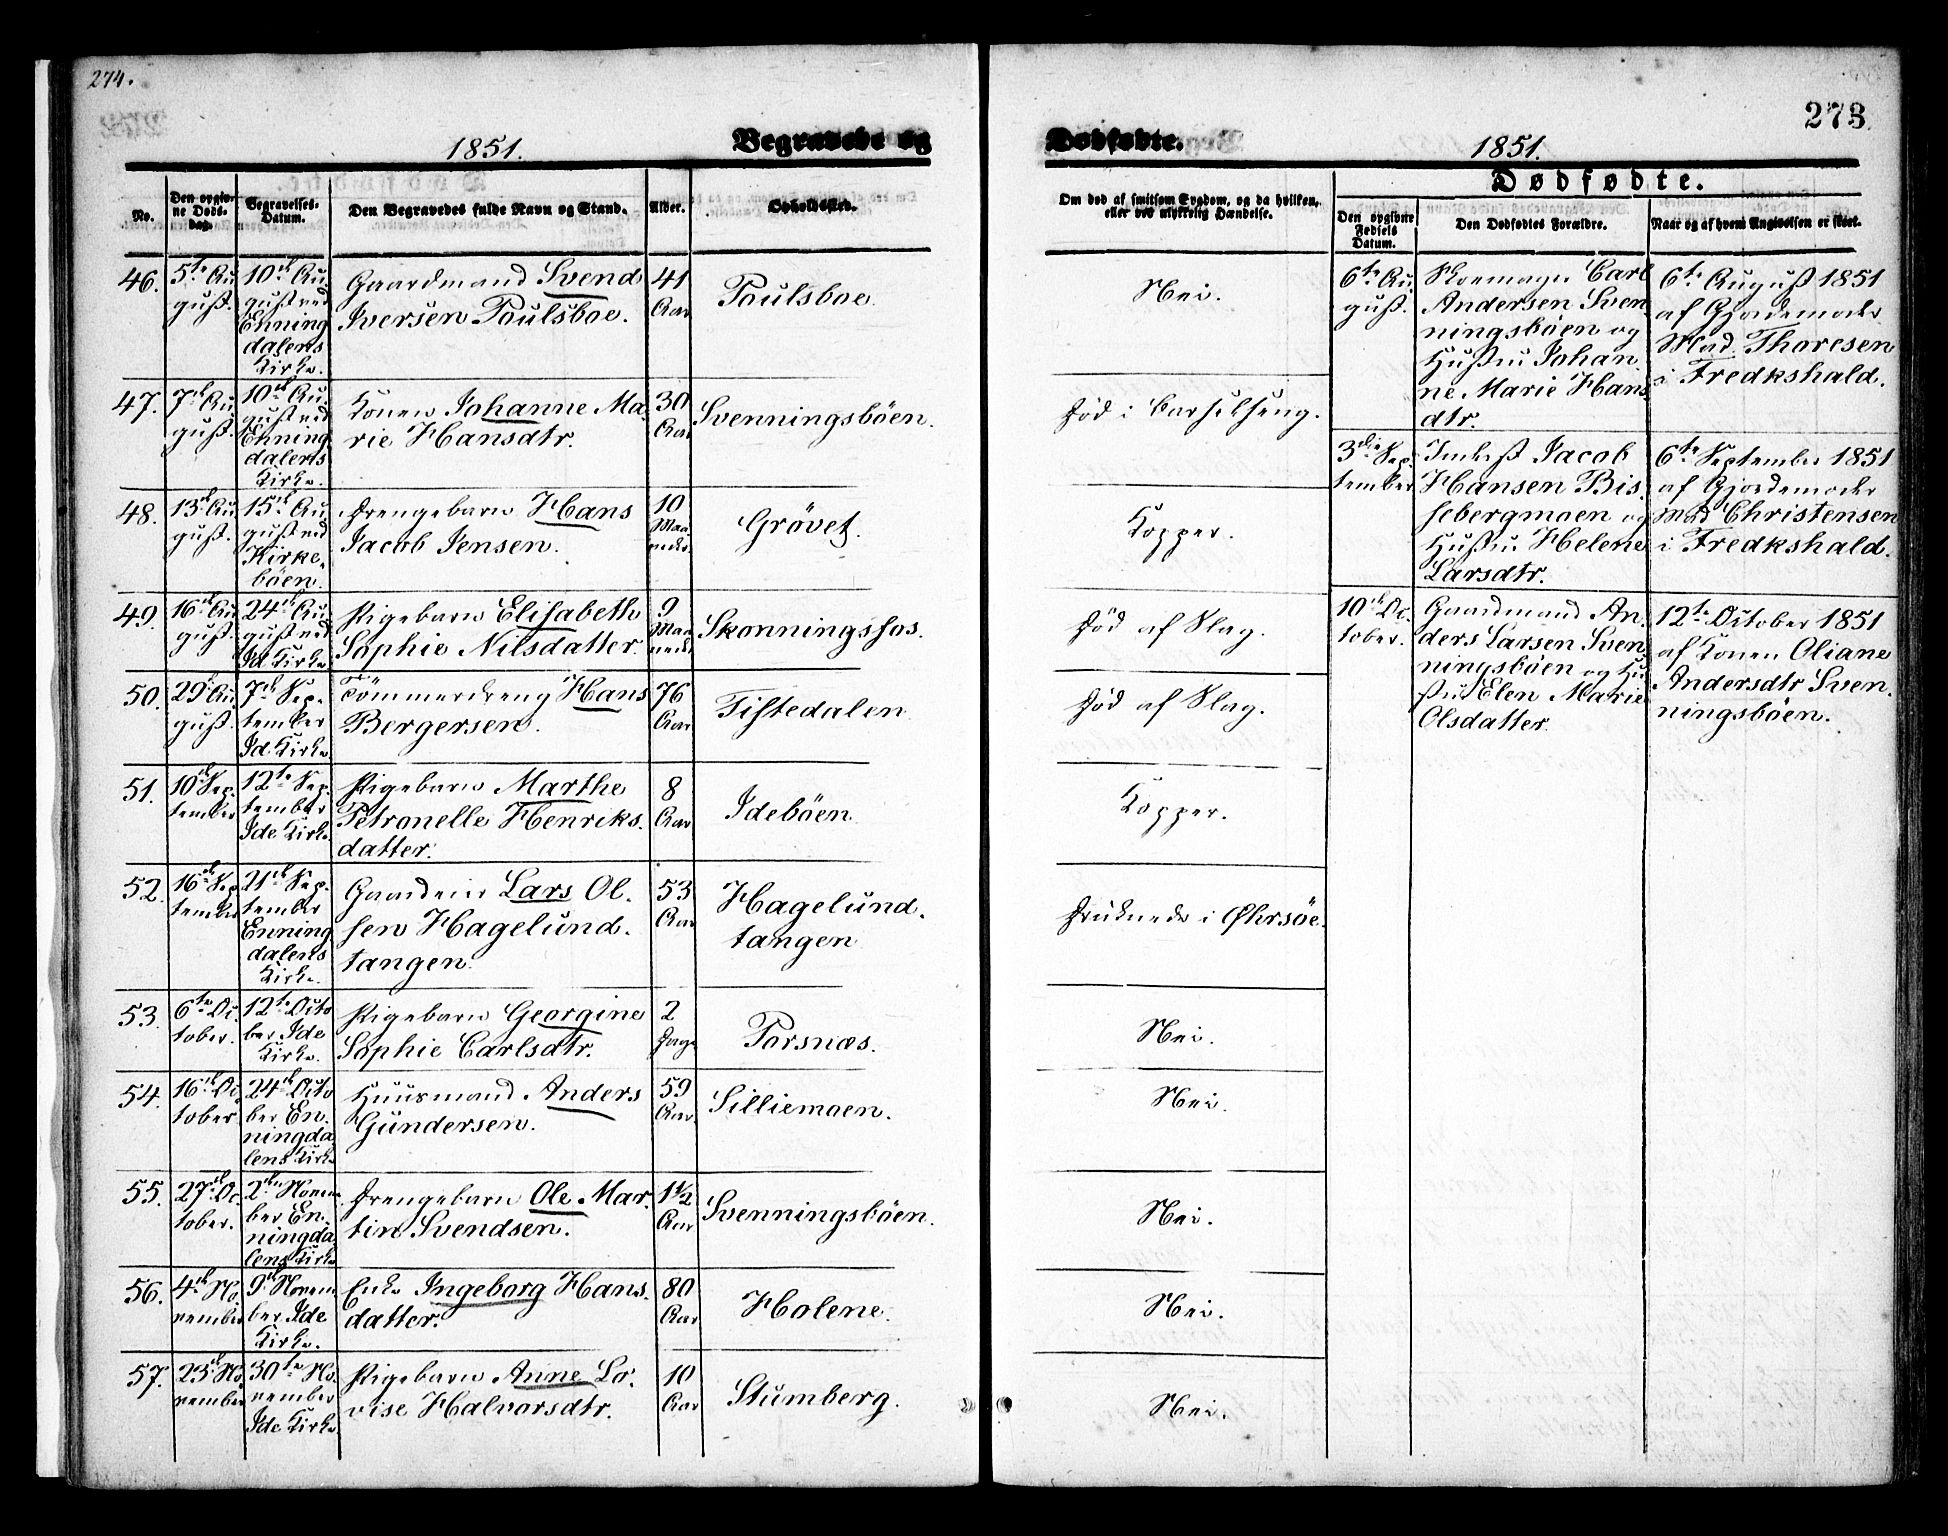 274.
1851.
Begravede og
No.
Den opgivne Døds-dag.
Begravelses-Datum.
Den Begravedes fulde Navn og Stand.
Alder.
Opholdssted.
46.
5te Au-
gust.
10de Au-
gust ved
Enning
dalens
Kirke.
Gaardmand Svend
Iversen Poulsboe.
41
Aar
Poulsboe.
47.
7de Au
gust.
10de Au-
gust ved
Enning
dalens
Kirke.
Konen Johanne Ma-
rie Hansdtr.
30
Aar
Svenningsbøen.
48.
13de Au-
gust.
15de Au-
gust ved
Kirke-
bøen.
Drengebarn Hans
Jacob Jensen.
10
Maa
neder
Grövet.
49.
16de Au
gust.
24de Au-
gust ved
Id Kirke
Pigebarn Elisabeth
Sophie Nilsdatter
9
Maa
neder
Skonningsfos.
50.
29de Au-
gust.
7de Sep-
tember
Id. Kirke
Tømmerdreng Hans
Bergersen.
76
Aar
Tistedalen
51.
10de Sep-
tember
12te Sep-
tember
Ide Kirke
Pigebarn Marthe
Petronelle Henriks-
datter.
8
Aar
Idebøen
52.
16de Sep
tember
21de Sep-
tember
Enning
dalens
Kirke.
Gaardeier Lars Ol-
sen Hagelund-
tangen.
53
Aar
Hagelund-
tangen
53.
6te Oc-
tober.
12te Octo
ber Ide
Kirke.
Pigebarn Georgine
Sophie Carlsdtr.
2
Dage
Torsnæs.
54.
16de Oc
tober
24de Octo
ber En-
ningda
lens Kirke
Huusmand Anders
Gundersen.
59
Aar
Silliemoen.
55.
27de Oc
tober.
2den Novem
ber En-
ningda
lens Kirke
Drengebarn Ole Mar
tin Svendsen.
1 1/2
Aar
Svenningsbøen.
56.
4de No-
vember
9de Novem
ber Ide
Kirke.
Enke Ingeborg Hans-
datter.
80
Aar
Holene.
57.
23de No
vember
30te No-
vember
Ide Kirke
Pigebarn Anne Lo-
vise Halvorsdtr.
10
Aar
Stumberg.
273.
Dødfødte.
1851.
Om død af smitsom Sygdom, og da hvilken,
eller ved ulykkelig Hændelse.
Dødfødte.
Den opgivne
Fødsels
Datum.
Den Dødfødtes Forældre.
Naar og af hvem Angivelsen er skeet.
Nei.
Død i Barselseng.
Kopper.
Død af Slag.
Død af Slag.
Kopper.
Druknede i Øhrsöe.
Nei.
Nei.
Nei.
Nei.
Nei.
6te Au-
gust.
Skomager Carl
Andersen Sven-
ningsbøen og
Hustru Johan-
ne Marie Hans
dtr.
6te August 1851
af Gjordemoder
Mad. Thoresen
i Fredkshald.
3die Sep-
tember
Inderst Jacob
Hansen Bis-
sebergmoen og
Hustru Helene
Larsdtr.
6te September 1851
af Gjordemoder
Mad Christensen
i Fredkshald.
10de Oc-
tober.
Gaardmand An-
ders Larsen Sven
ningsbøen og Hu-
stru Elen Marie
Olsdatter.
12te October 1851
af Konen Oliane
Andersdtr Sven-
ningsbøen.